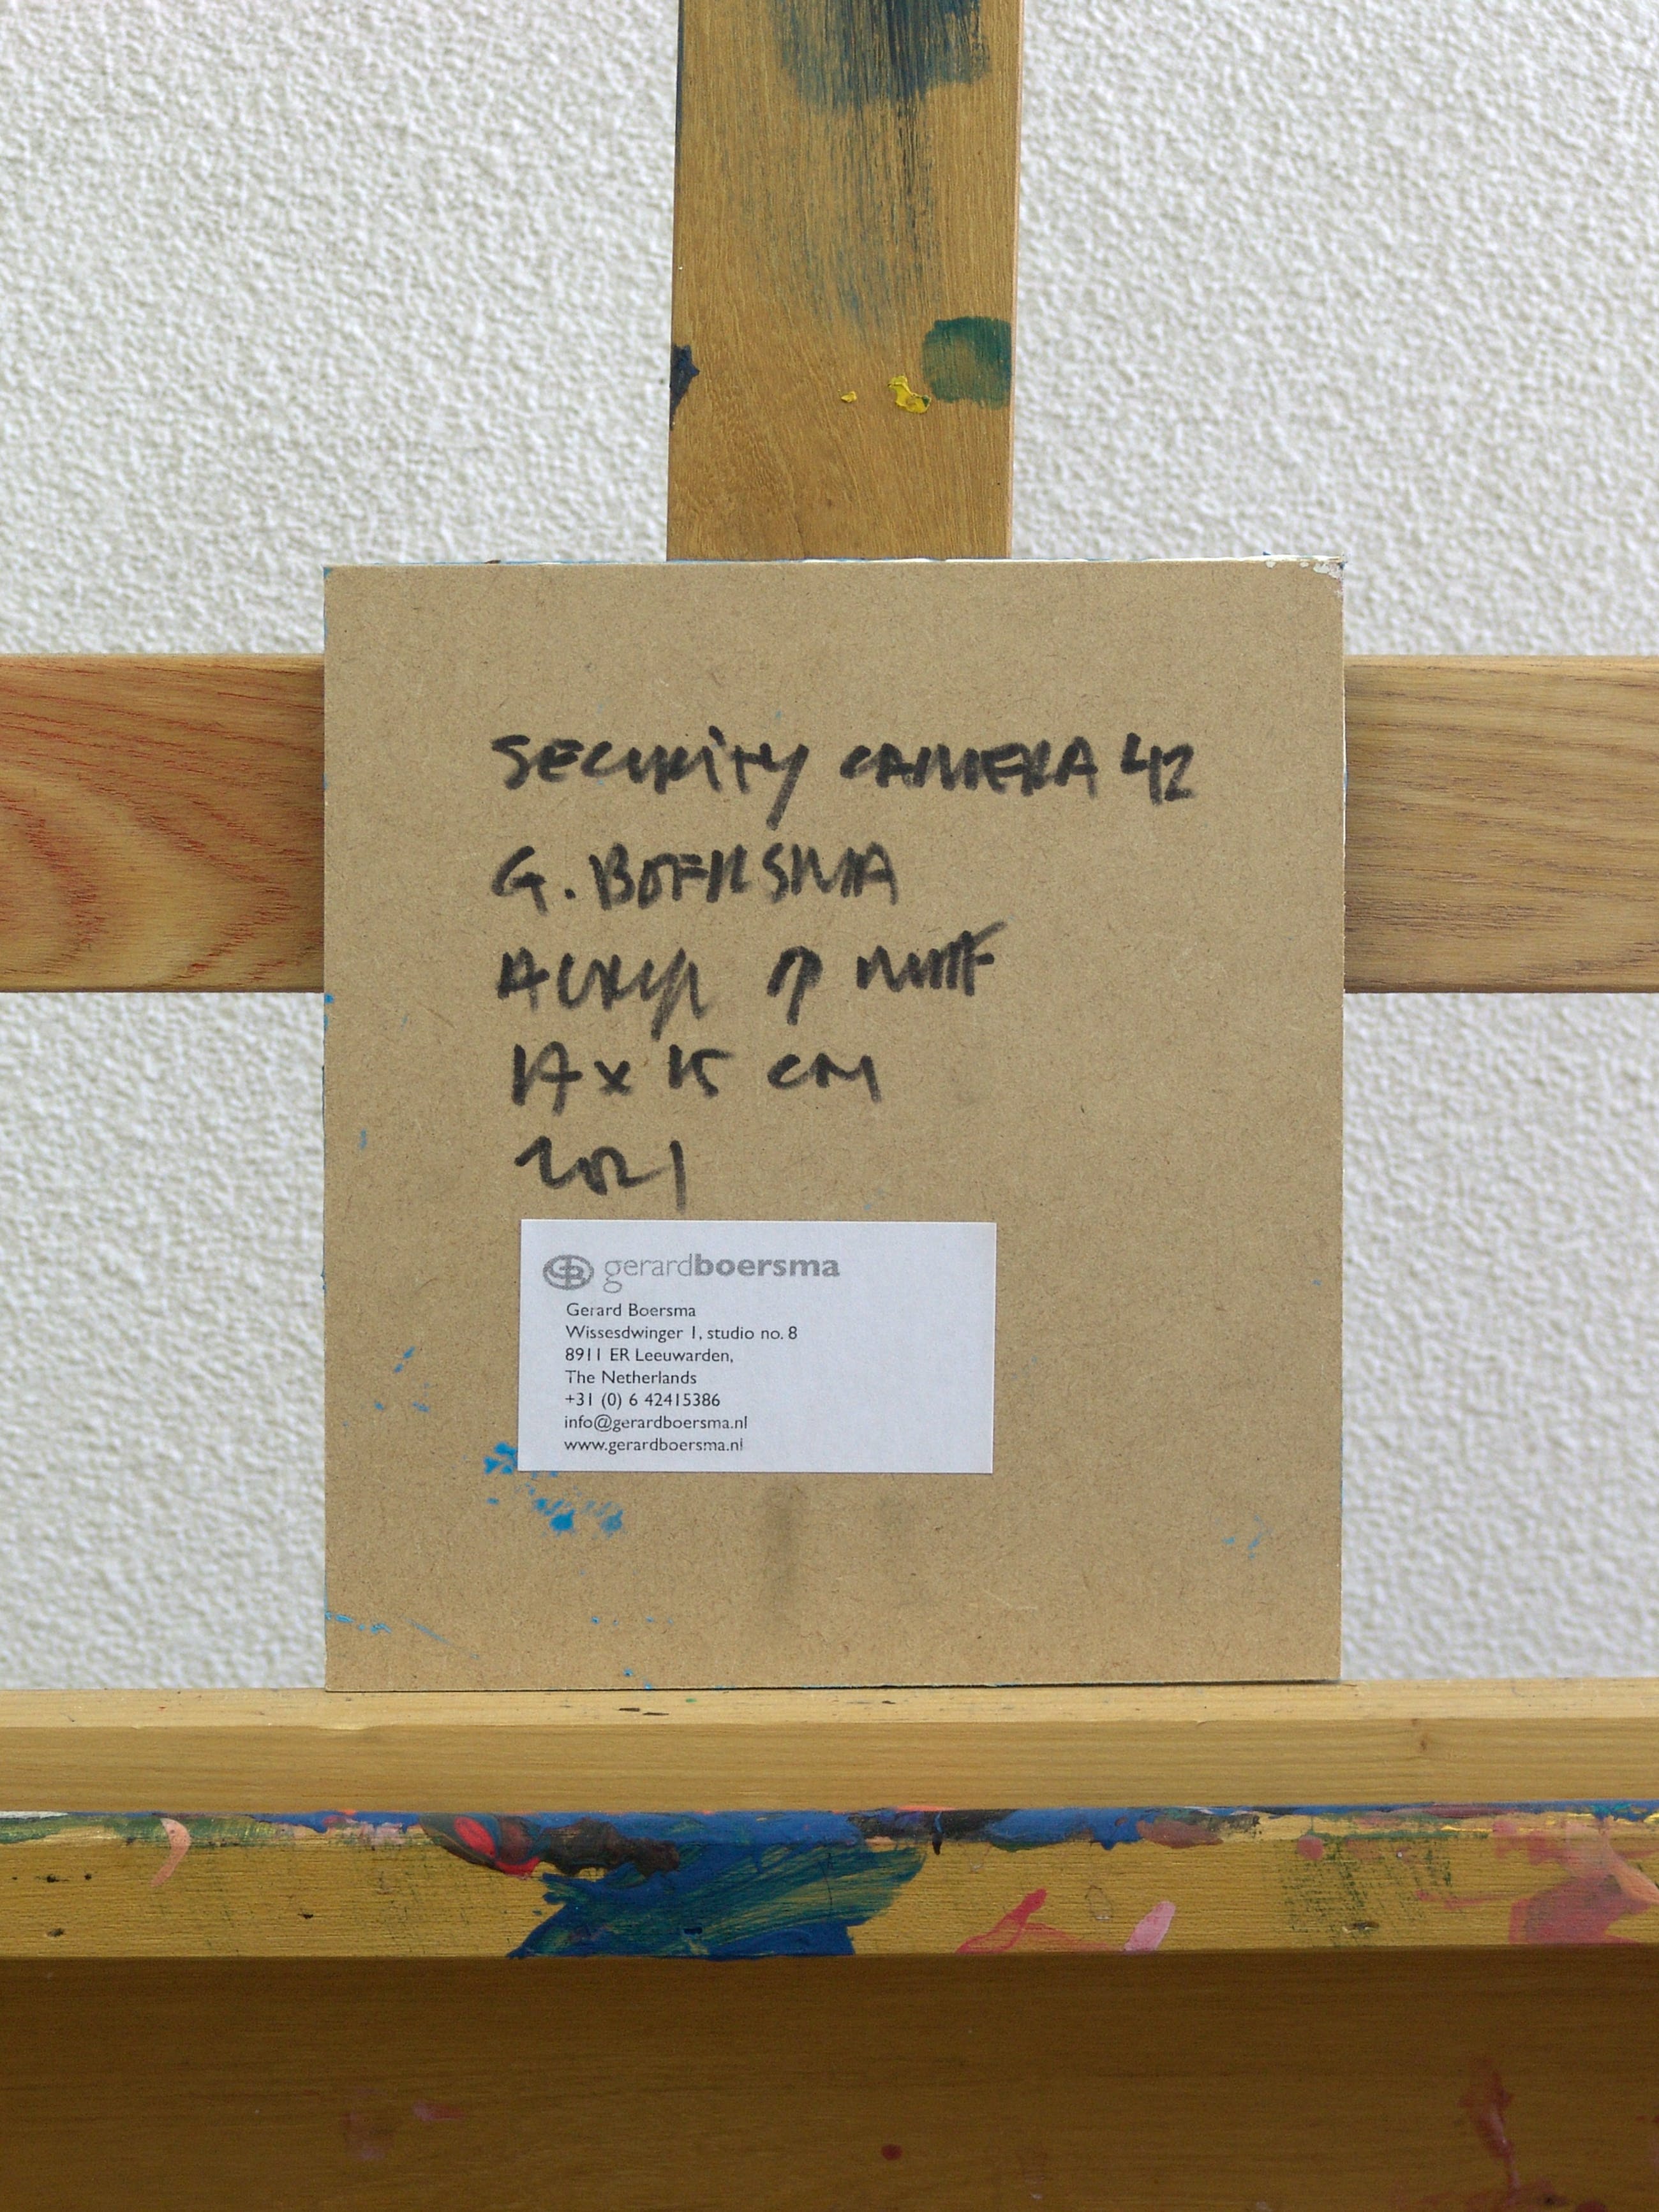 SECURiTY CAMERA 42
G. BOERSMA
ACRYL OP MDF
17 x 15 CM
2021
GB gerardboersma
Gerard Boersma
Wissesdwinger 1, studio no. 8
8911 ER Leeuwarden,
The Netherlands
+31 (0) 6 42415386
info@gerardboersma.nl
www.gerardboersma.nl